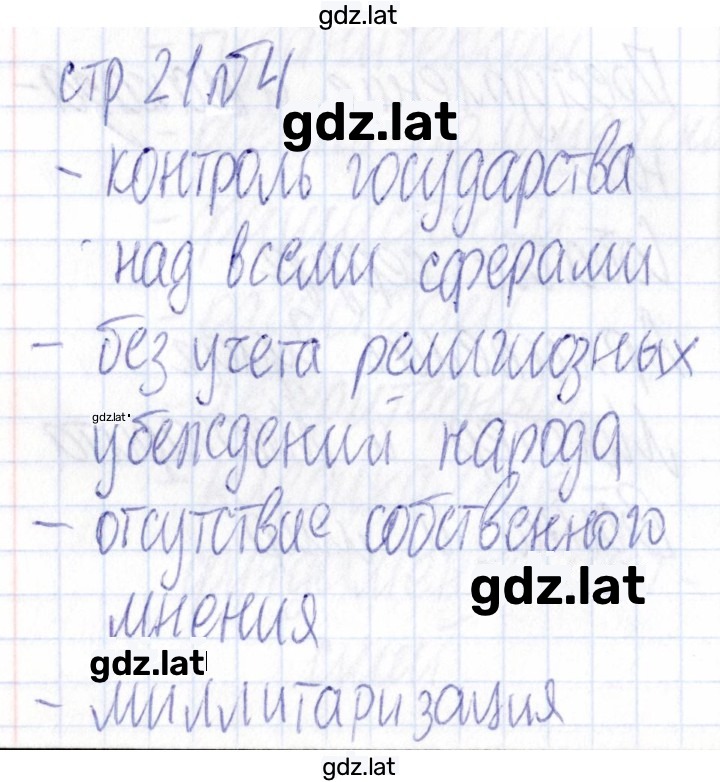 gdz.lat
стр 21 №4
gdz.lat
- контроль государства
над всеми сферами
- без учета религиозных
gdz.lat
убеждений народа
- отсутствие собственного
gdz.lat
мнения
gdz.lat
- миллитаризация
gdz.lat